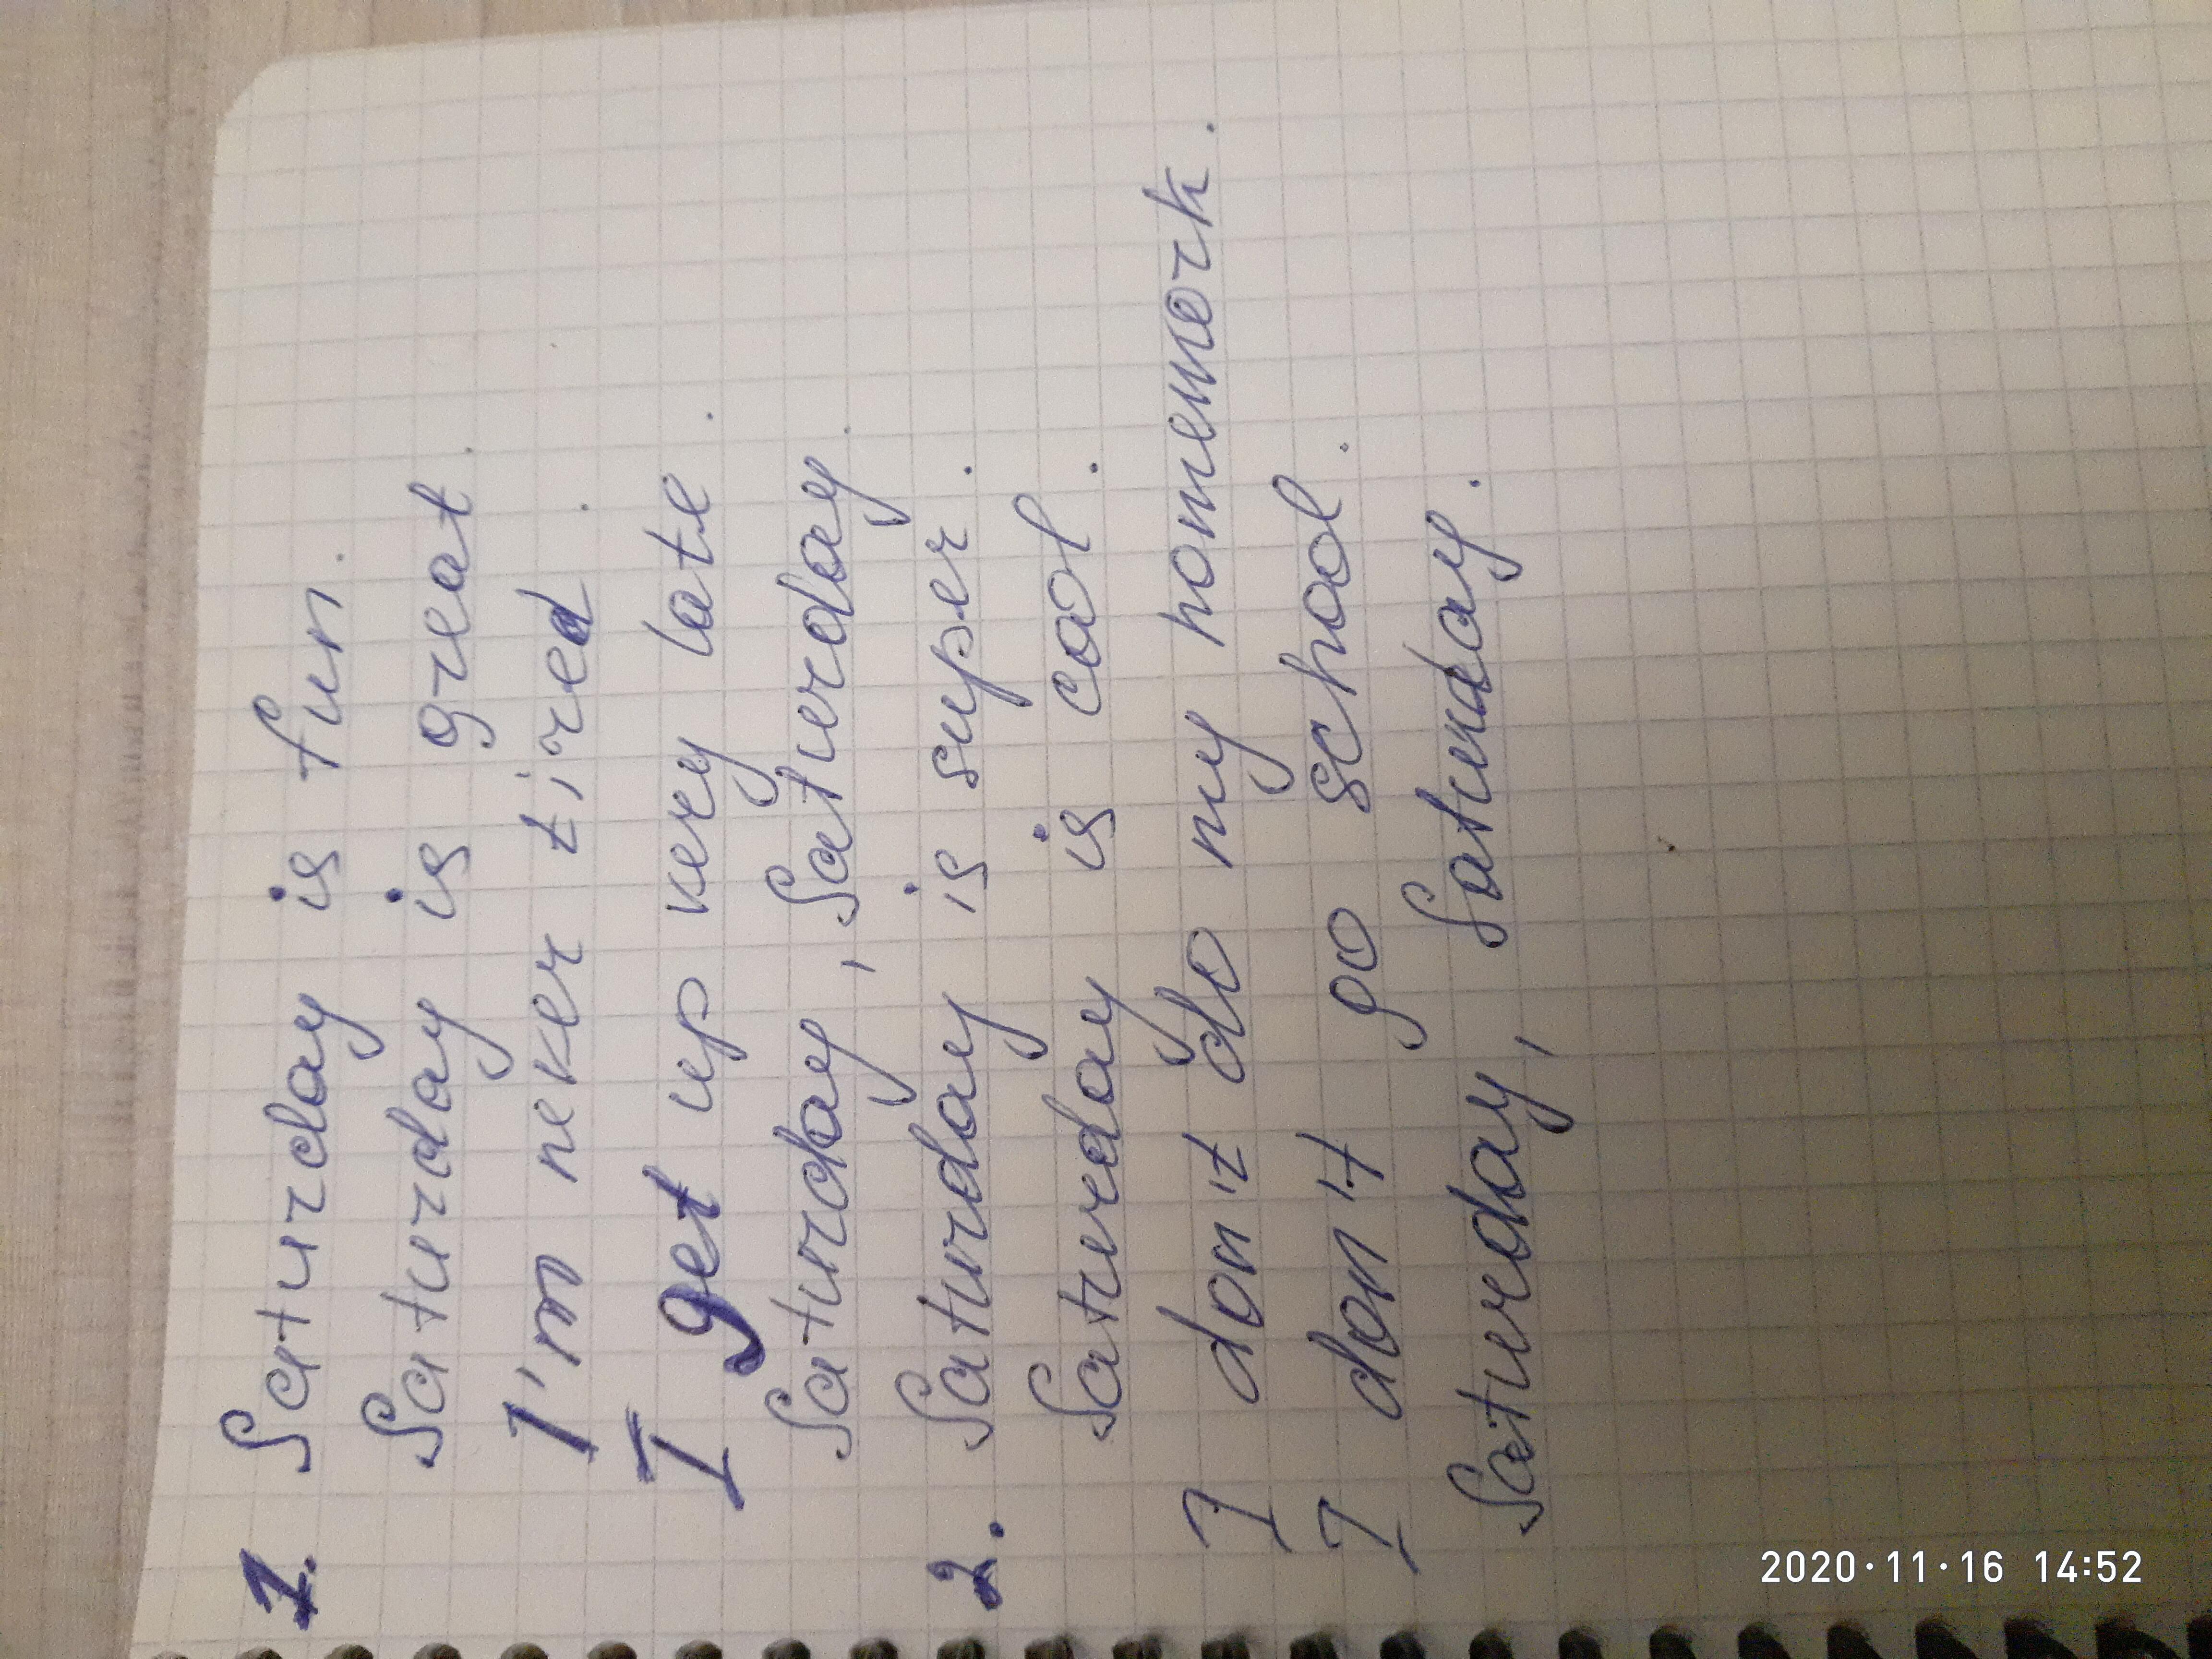 1. Saturday is fun.
Saturday is great.
I'm never tired.
I get up very late.
Saturday, Saturday.
2. Saturday is super.
Saturday is cool.
I don't do my homework.
I don't go school.
Saturday, Saturday.
2020·11·16 14:52